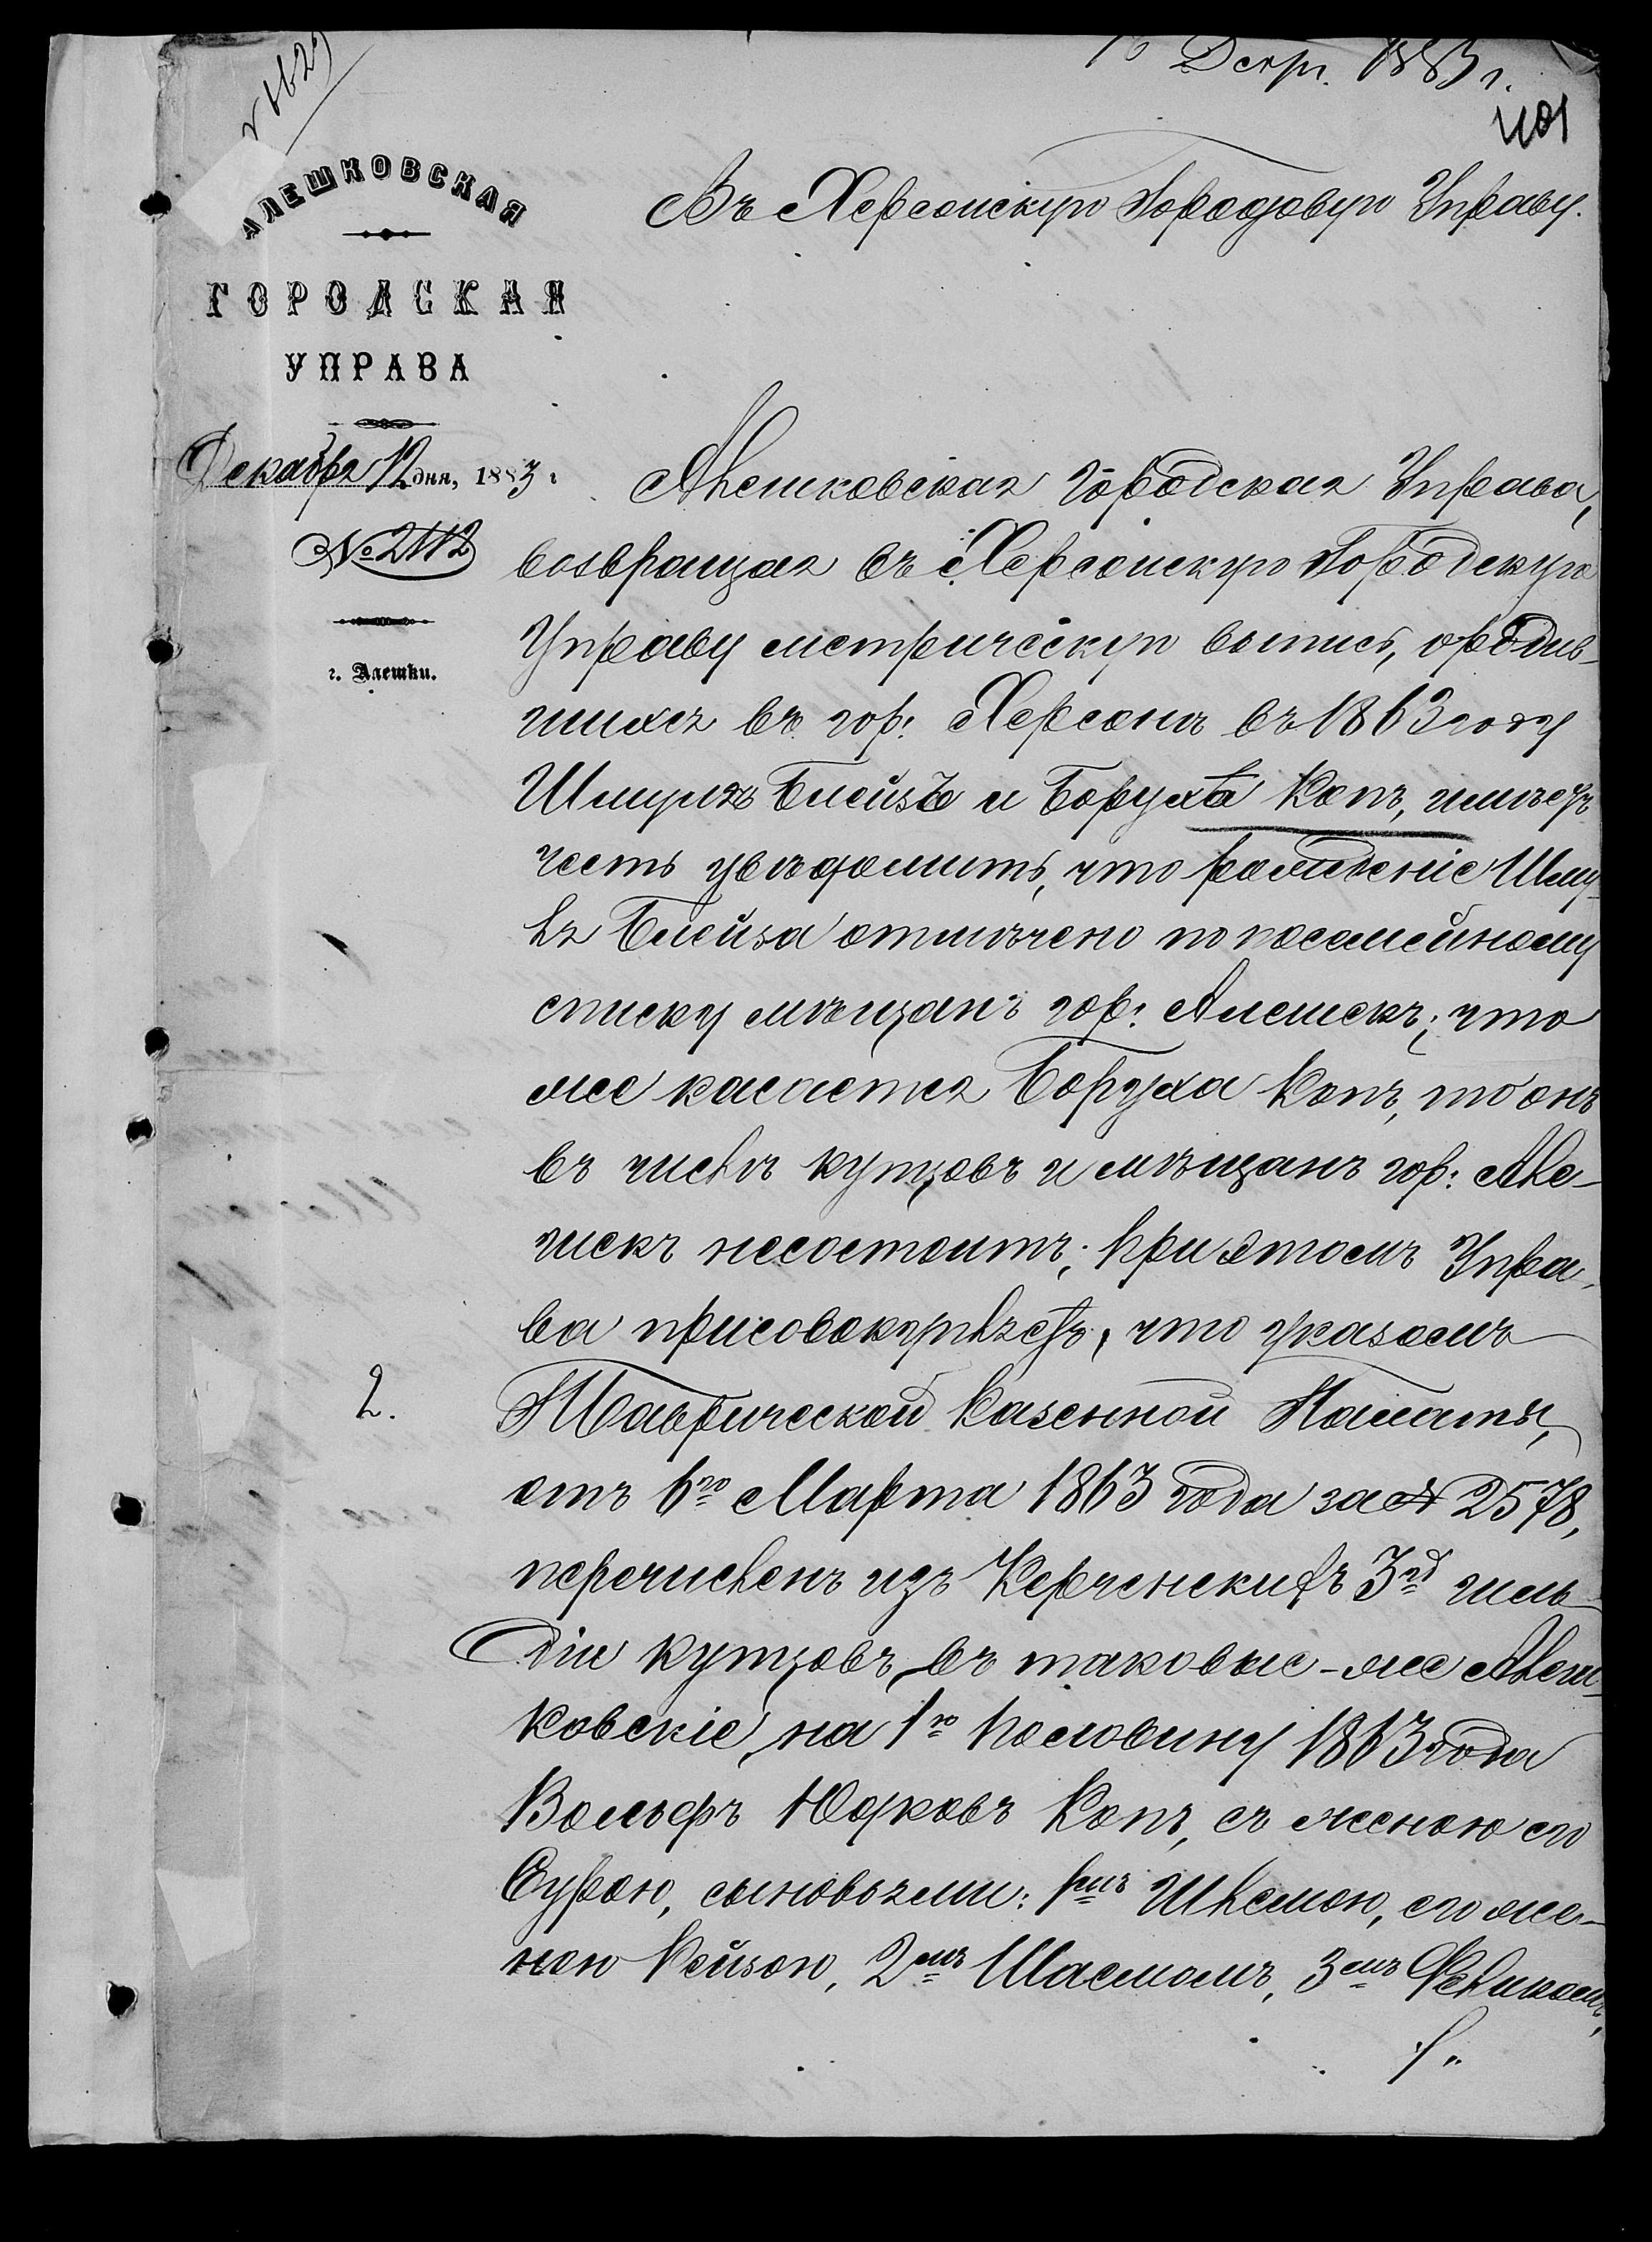 16 Декр. 1883 г.
401
АЛЕШКОВСКАЯ
ГОРОДСКАЯ
УПРАВА
Декабря 12 дня, 1883 г
№ 2112
г. Алешки.
Въ Херсонскую Городовую Управу.
Алешковская Городская Управа,
возвращая въ Херсонскую Городскую
Управу метрическую выпись, о родив-
шихся въ гор: Херсонѣ въ 1863 году
Шмуля Блейзъ и Боруха Копъ, имѣетъ
честь увѣдомить, что рожденіе Шму-
ля Блейза отмѣчено по посемейному
списку мѣщанъ гор: Алешекъ; что
же касается Боруха Копъ, то онъ
въ числѣ купцовъ и мѣщанъ гор: Але-
шекъ несостоитъ; при этомъ Упра-
ва присовокупляетъ, что указомъ
2.
Таврической Казенной Палаты,
отъ 6го Марта 1863 года за № 2578,
перечисленъ изъ Керченскихъ 3й гиль-
діи купцовъ, въ таковые-же Алеш-
ковскіе, на 1ю половину 1863 года
Вольфъ Юдковъ Копъ, съ женою его
Сурою, сыновьями: 1мъ Шлемою, его же-
ною Рейзою, 2мъ Шаемомъ, 3мъ Феликомъ,